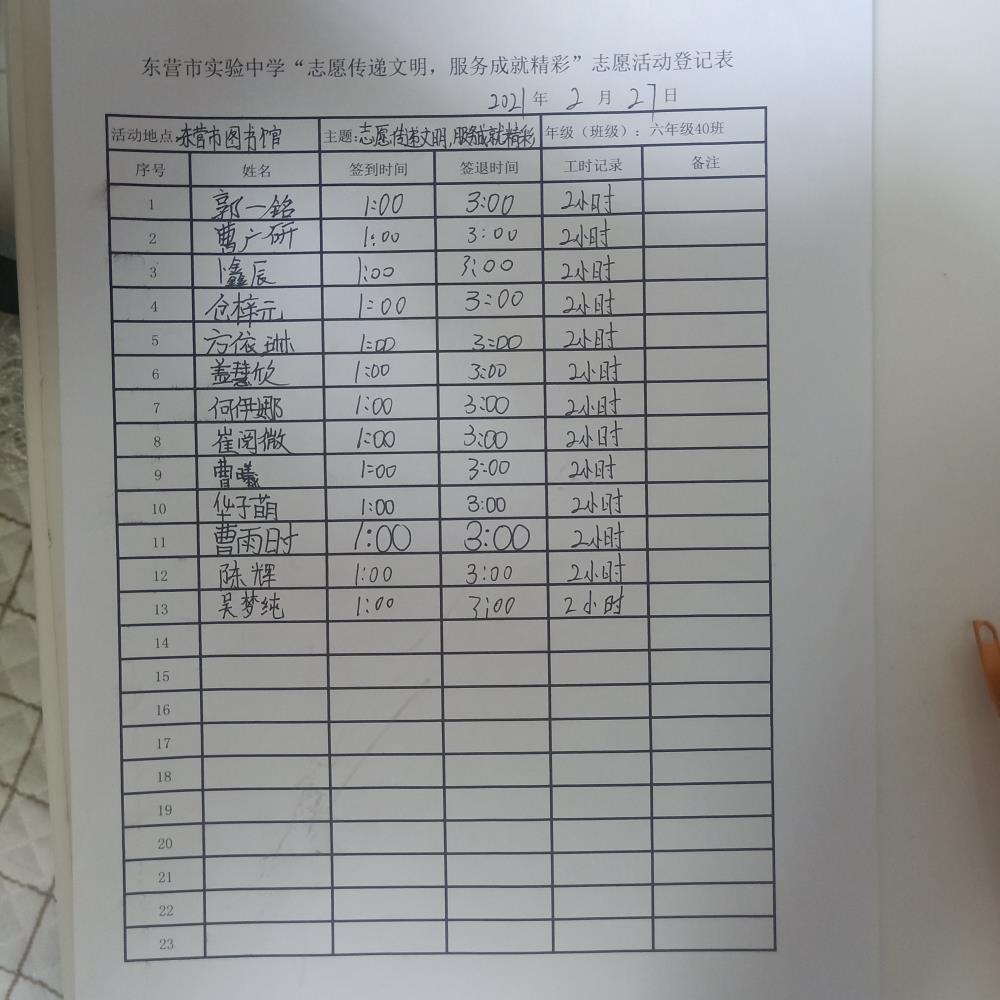 东营市实验中学“志愿传递文明，服务成就精彩”志愿活动登记表
2021年 2 月 27日
活动地点:东营市图书馆 主题:志愿传递文明,服务成就精彩 年级（班级）：六年级40班
序号 姓名 签到时间 签退时间 工时记录 备注
1 郭一铭 1:00 3:00 2小时
2 曹广研 1:00 3:00 2小时
3 卜鑫辰 1:00 3:00 2小时
4 仓梓元 1:00 3:00 2小时
5 方依琳 1:00 3:00 2小时
6 盖慧欣 1:00 3:00 2小时
7 何伊娜 1:00 3:00 2小时
8 崔阅微 1:00 3:00 2小时
9 曹曦 1:00 3:00 2小时
10 华子萌 1:00 3:00 2小时
11 曹雨时 1:00 3:00 2小时
12 陈辉 1:00 3:00 2小时
13 吴梦纯 1:00 3:00 2小时
14
15
16
17
18
19
20
21
22
23